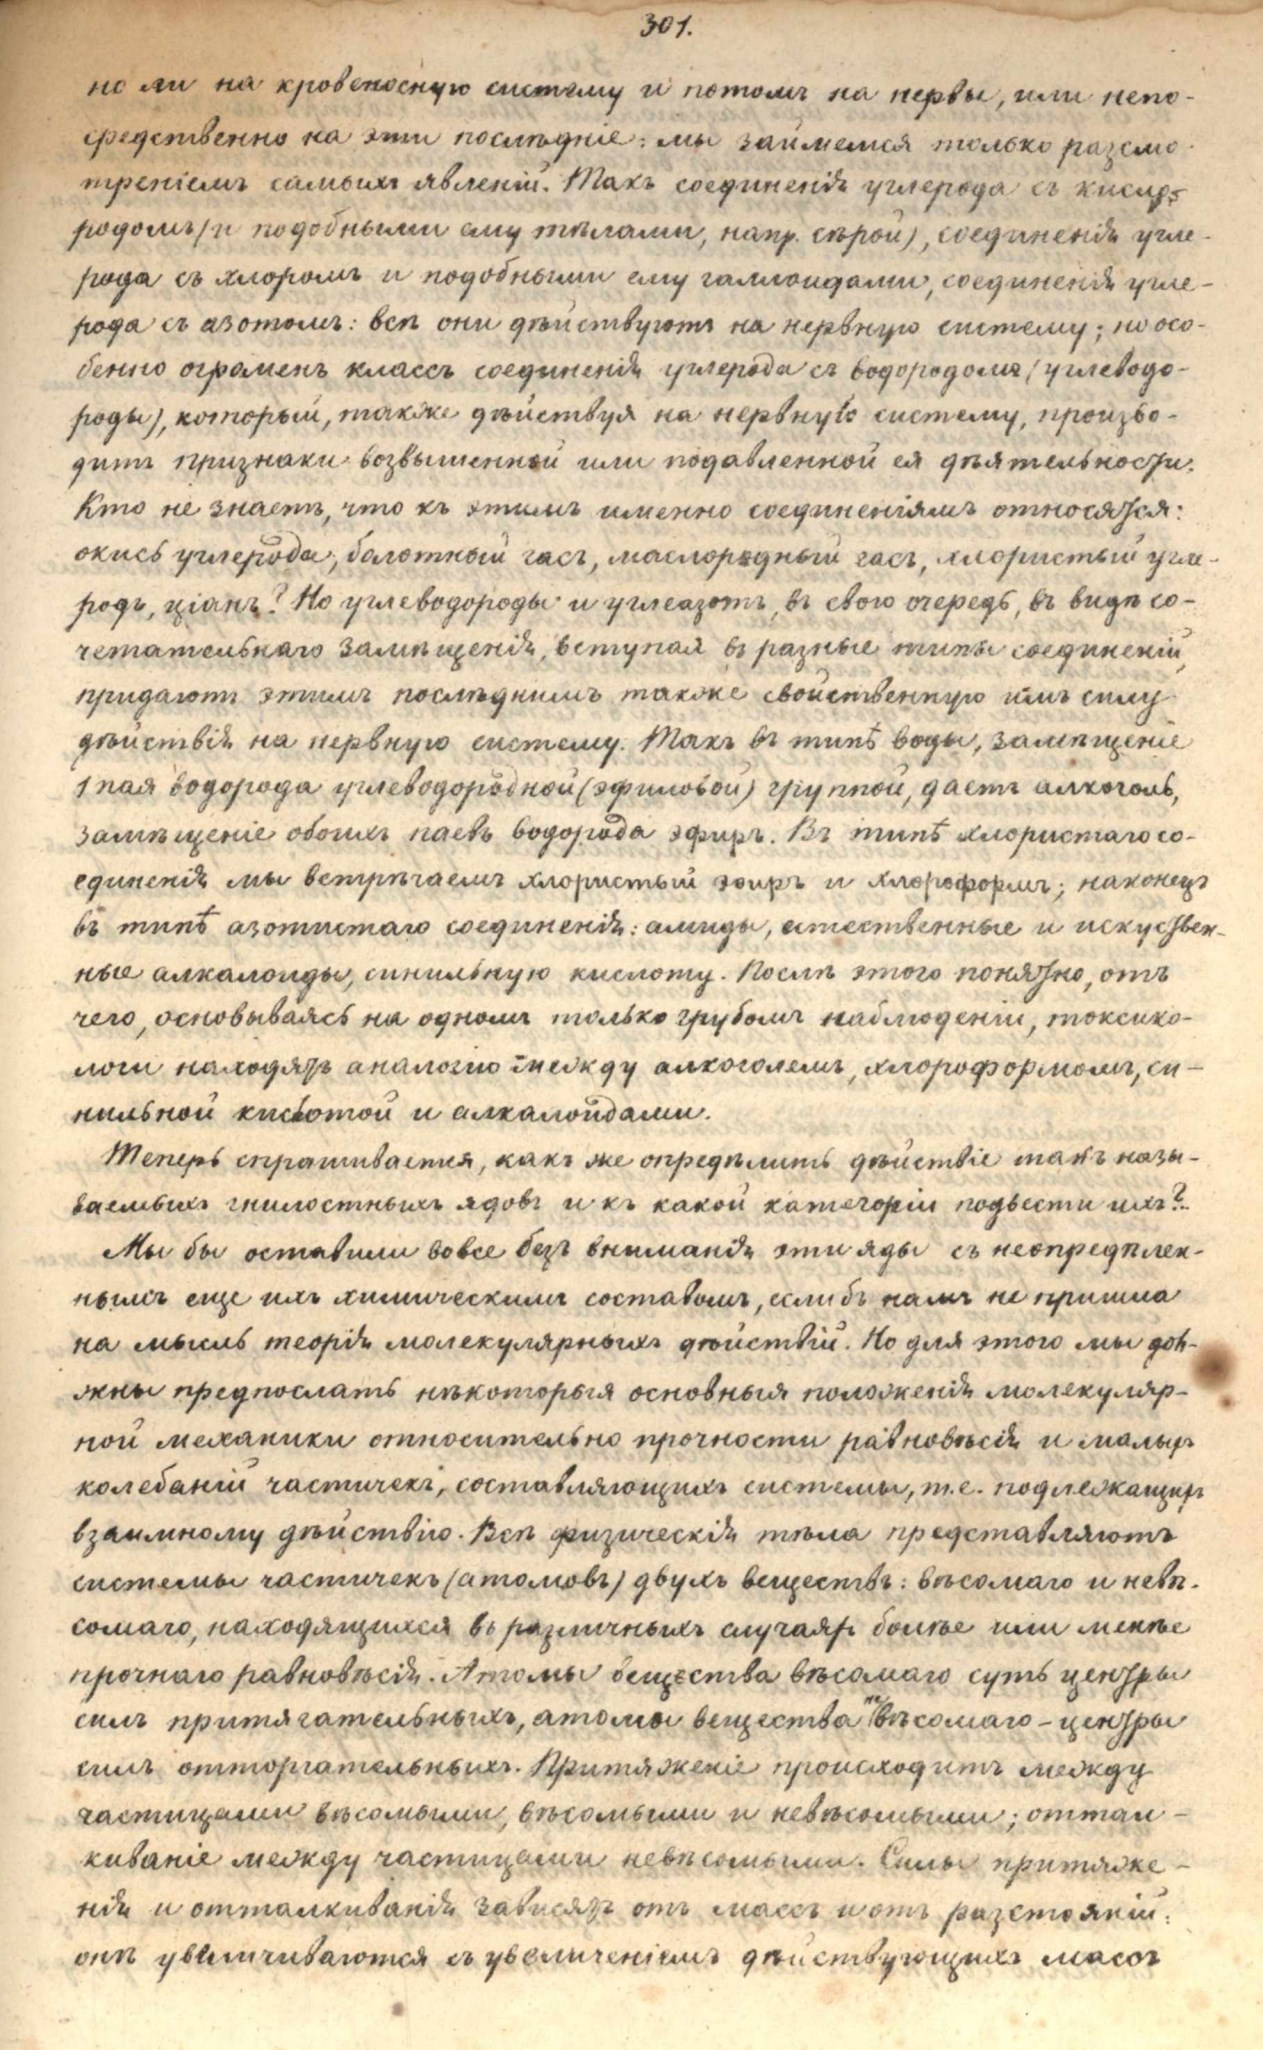 301.
но ли на кровеносную систему и потомъ на нервы, или непо-
средственно на эти послѣдніе: мы займемся только разсмо-
трѣніемъ самыхъ явленій. Такъ соединенія углерода съ кисло-
родомъ (и подобными ему тѣлами, напр. сѣрой), соединенія угле-
рода съ хлоромъ и подобными ему галлоидами, соединенія угле-
рода съ азотомъ: всѣ они дѣйствуютъ на нервную систему; но осо-
бенно огроменъ классъ соединенія углерода съ водородомъ (углеводо-
роды), который, также дѣйствуя на нервную систему, произво-
дитъ признаки возвышенной или подавленной ея дѣятельности.
Кто не знаетъ, что къ этимъ именно соединеніямъ относятся:
окись углерода, болотный гасъ, маслородный гасъ, хлористый угле-
родъ, ціанъ? Но углеводороды и углеазотъ, въ свою очередь, въ видѣ со-
четательнаго замѣщенія, вступая въ разные типы соединеній,
придаютъ этимъ послѣднимъ также свойственную имъ силу
дѣйствія на нервную систему. Такъ въ типѣ воды, замѣщеніе
1 пая водорода углеводородной (эфиловой) группой, даетъ алкоголь,
замѣщеніе обоихъ паевъ водорода эфиръ. Въ типѣ хлористаго со-
единенія мы встрѣчаемъ хлористый эфиръ и хлороформъ; наконецъ
въ типѣ азотистаго соединенія: амиды, естественные и искуствен-
ные алкалоиды, синильную кислоту. Послѣ этого понятно, отъ
чего, основываясь на одномъ только грубомъ наблюденіи, токсико-
логи находятъ аналогію между алкоголемъ, хлороформомъ, си-
нильной кислотой и алкалоидами.
Теперь спрашивается, какъ же опредѣлить дѣйствіе такъ назы-
ваемыхъ гнилостныхъ ядовъ и къ какой категоріи подвести ихъ?
Мы бы оставили вовсе безъ вниманія эти яды съ неопредѣлен-
нымъ еще ихъ химическимъ составомъ, если бъ намъ не пришла
на мысль теорія молекулярныхъ дѣйствій. Но для этого мы дол-
жны предпослать нѣкоторыя основныя положенія молекуляр-
ной механики относительно прочности равновѣсія и малыхъ
колебаній частичекъ, составляющихъ системы, т.е. подлежащихъ
взаимному дѣйствію. Всѣ физическія тѣла представляютъ
системы частичекъ (атомовъ) двухъ веществъ: вѣсомаго и невѣ-
сомаго, находящихся въ различныхъ случаяхъ болѣе или менѣе
прочнаго равновѣсія. Атомы вещества вѣсомаго суть центры
силъ притягательныхъ, атомы вещества невѣсомаго - центры
силъ отторгательныхъ. Притяженіе происходитъ между
частицами вѣсомыми, вѣсомыми и невѣсомыми; оттал-
киваніе между частицами невѣсомыми. Силы притяже-
нія и отталкиванія зависятъ отъ массъ и отъ разстояній:
онѣ увеличиваются съ увеличеніемъ дѣйствующихъ массъ